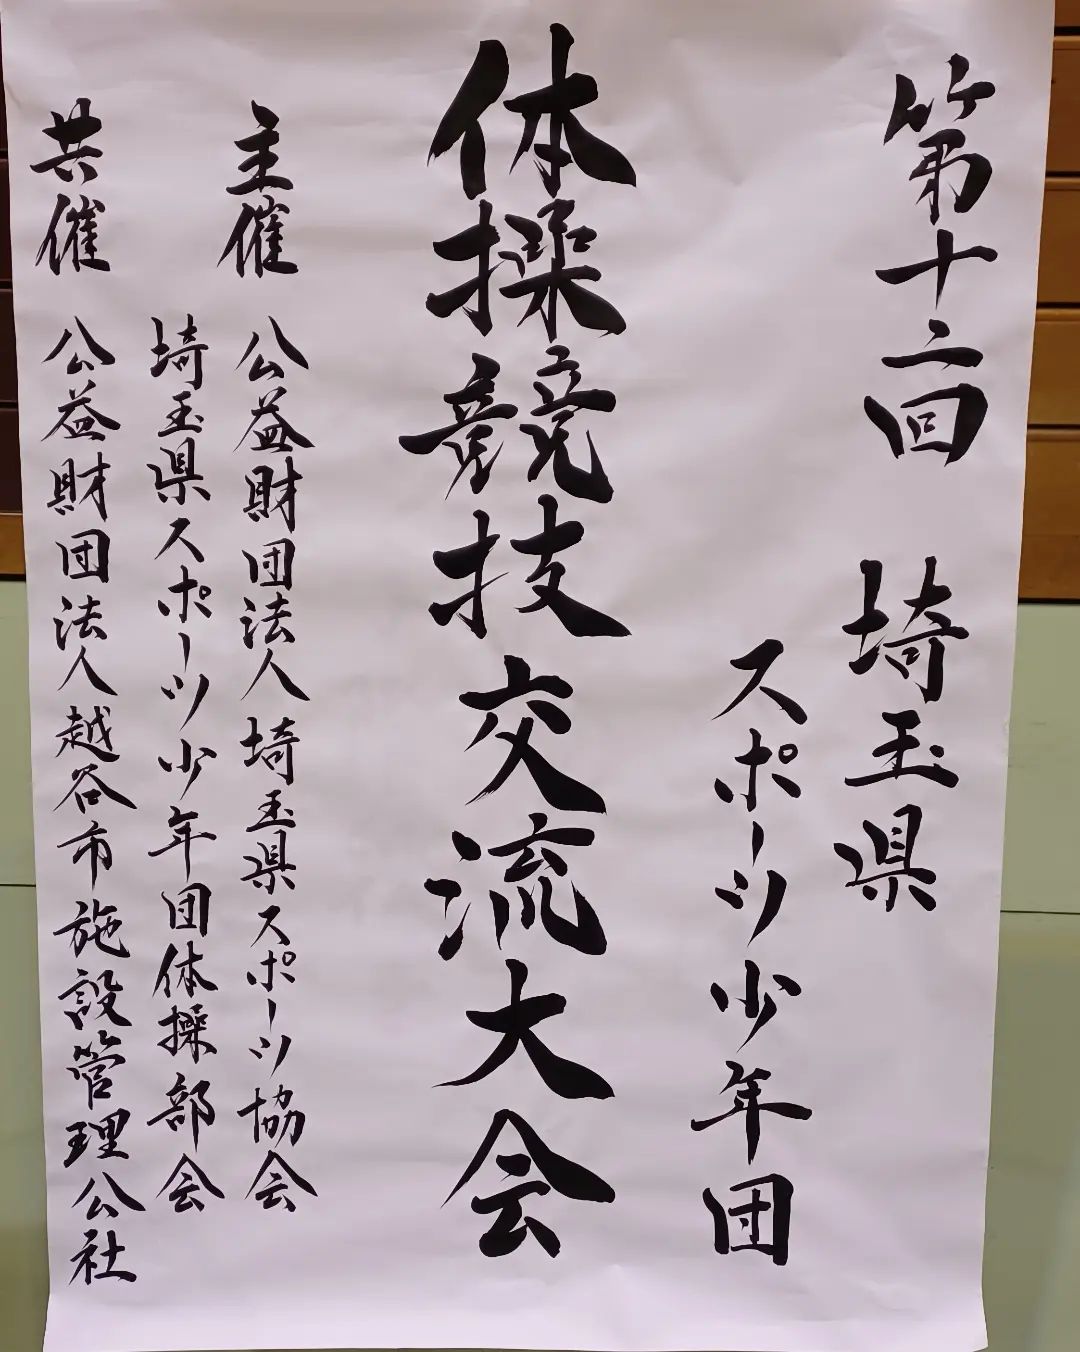 第十二回　埼玉県
スポーツ少年団
体操競技交流大会
主催　公益財団法人埼玉県スポーツ協会
埼玉県スポーツ少年団体操部会
共催　公益財団法人越谷市施設管理公社